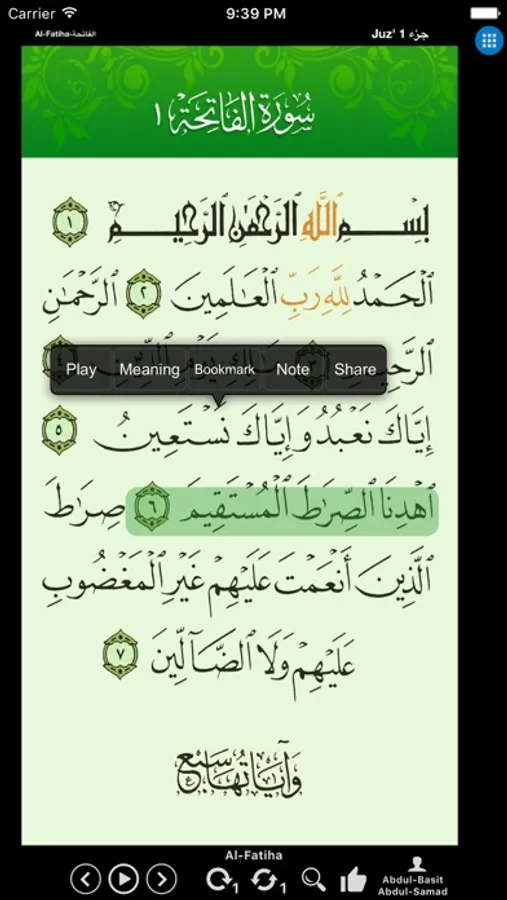 Carrier 9:39 PM
Al-Fatiha-الفاتحة Juz' 1 جزء
سُورَةُ الفَاتِحَة ١
بِسْمِ اللَّهِ الرَّحْمَٰنِ الرَّحِيمِ ١
الْحَمْدُ لِلَّهِ رَبِّ الْعَالَمِينَ ٢ الرَّحْمَٰنِ
الرَّحِيمِ ٣ مَالِكِ يَوْمِ الدِّينِ ٤
Play Meaning Bookmark Note Share
إِيَّاكَ نَعْبُدُ وَإِيَّاكَ نَسْتَعِينُ ٥
اهْدِنَا الصِّرَاطَ الْمُسْتَقِيمَ ٦ صِرَاطَ
الَّذِينَ أَنْعَمْتَ عَلَيْهِمْ غَيْرِ الْمَغْضُوبِ
عَلَيْهِمْ وَلَا الضَّآلِّينَ ٧
وَآيَاتُهَا سَبْع
Al-Fatiha
1 1 Abdul-Basit
Abdul-Samad